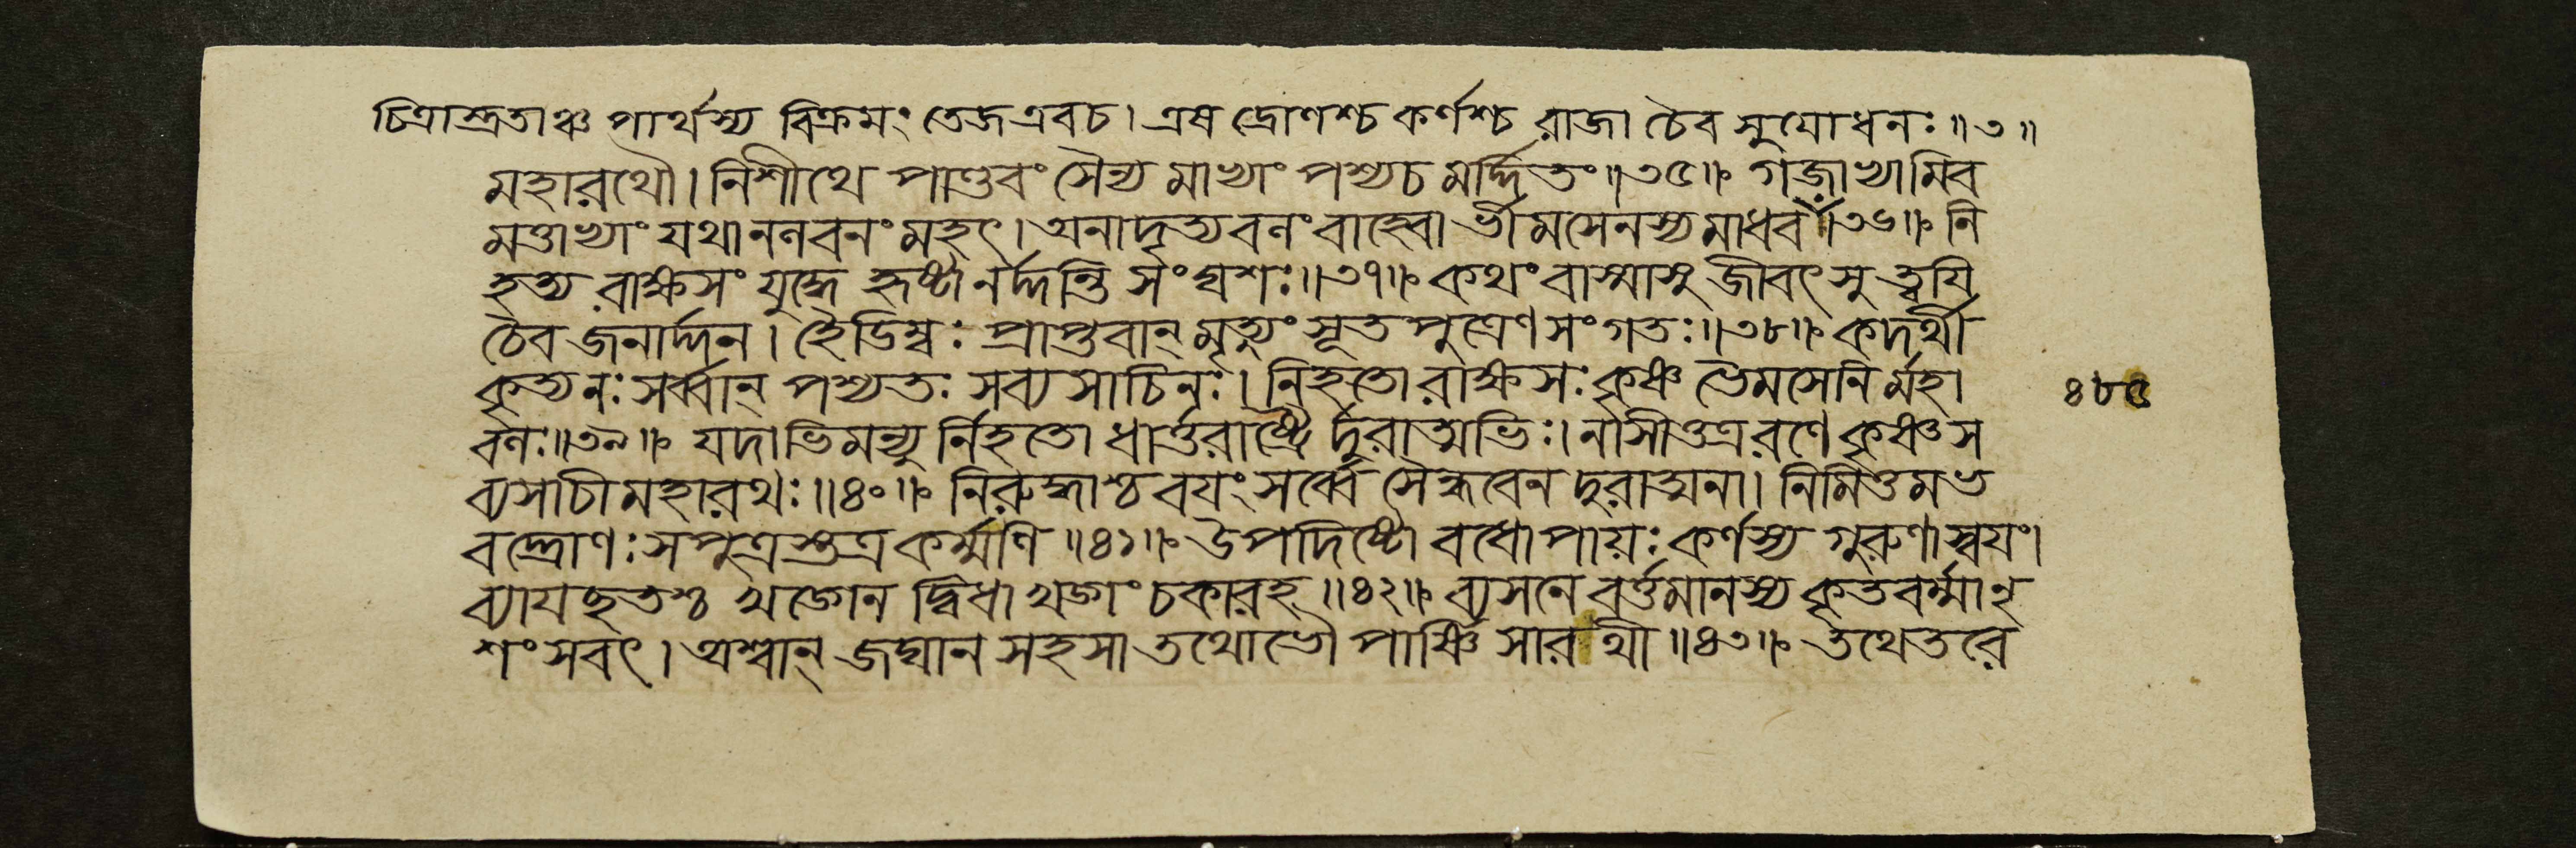 চিত্রাস্ত্রতাঞ্চ পার্থস্য বিক্রমং তেজ এবচ। এষ দ্রোণশ্চ কর্ণশ্চ রাজা চৈব সুযোধনঃ॥৩॥
মহারথৌ। নিশীথে পাণ্ডবং সৈন্য মাখ্যাং পশ্যচ মর্দ্দিতং॥৩৫॥ গজাখ্যামিব
মত্তাখ্যাং যথা নলবনং মহৎ। অনাদৃত্য বলং বাহ্বো র্ভীমসেনস্য মাধব॥৩৬॥ নি
হত্য রাক্ষসং যুদ্ধে হৃষ্টা নর্দ্দন্তি সংঘশঃ॥৩৭॥ কথং বাস্মাসু জীবৎসু ত্বযি
চৈব জনার্দ্দন। হৈডিম্বঃ প্রাপ্তবান্ মৃত্যুং সূতপুত্রেণ সংগতঃ॥৩৮॥ কদর্থী
কৃত্য নঃ সর্ব্বান্ পশ্যতঃ সব্যসাচিনঃ। নিহতো রাক্ষসঃ কৃষ্ণ ভৈমসেনি র্মহা
বলঃ॥৩৯॥ যদাভিমন্যু র্নিহতো ধার্ত্তরাষ্ট্রৈ র্দুরাত্মভিঃ। নাসীত্তত্র রণে কৃষ্ণ স
ব্যসাচী মহারথঃ॥৪০॥ নিরুদ্ধাশ্চ বযং সর্ব্বে সৈন্ধবেন দুরাত্মনা। নিমিত্তমভ
বদ্দ্রোণঃ সপুত্রস্তত্র কর্ম্মণি॥৪১॥ উপদিষ্টো বধোপায়ঃ কর্ণস্য গুরুণা স্বযং।
ব্যাযছতশ্চ খড্গেন দ্বিধা খড্গং চকারহ॥৪২॥ ব্যসনে বর্ত্তমানস্য কৃতবর্ম্মানৃ
শংসবৎ। অশ্বান্ জঘান সহসা তথোভৌ পার্ষ্ণি সারথী॥৪৩॥ তথেতরে
৪৮৫